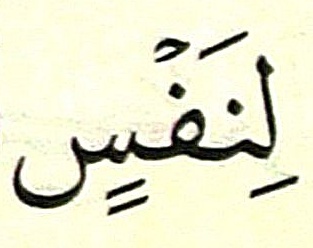 لِنَفْسٍ